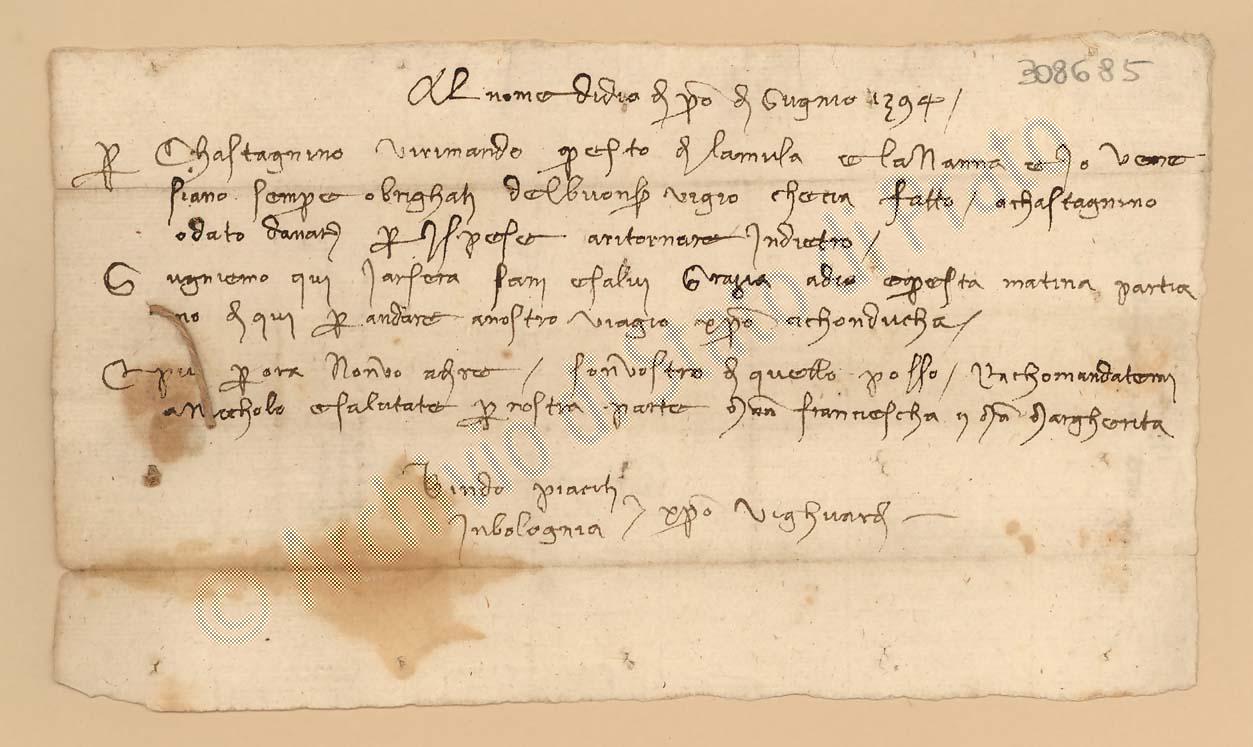 308685
Al nome di dio dì pº di Gugnio 1394 /
Per Chastagnino vi rimando questo di la mula e la Nanna e io ve ne
siano sempre obrighati del buon servigio che ci a fatto / a Chastagnino
o dato danari per ispese a ritornare indietro /
Gugniemo qui iarsera sani e salvi Grazia a dio e questa matina partia
no di qui per andare a nostro viagio xpº a chonducha /
E più per ora non vo a dire / son vostro di quello posso / Rachomandatemi
a Necholo e salutate per nostra parte Mona Franciescha y Mª Margherita
Guido piaciti
in bolognia / xpº vighuardi —
© Archivio di Stato di Prato